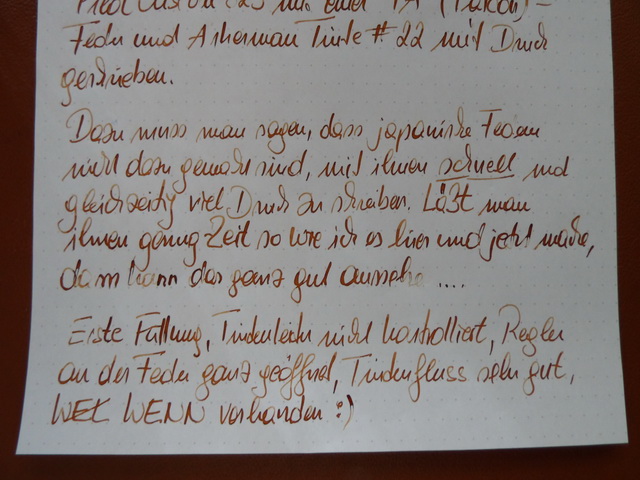 Pilot Custom 823 mit einer FA (Falcon) -
Feder und Akkerman Tinte # 22 mit Druck
geschrieben.
Dazu muss man sagen, dass japanische Federn
nicht dazu gemacht sind, mit ihnen schnell und
gleichzeitig viel Druck zu schreiben. Läßt man
ihnen genug Zeit so wie ich es hier und jetzt mache,
dann kann das ganz gut aussehen ....
Erste Füllung, Tintenleiter nicht kontrolliert, Regler
an der Feder ganz geöffnet, Tintenfluss sehr gut,
WEIL WENN vorhanden :)